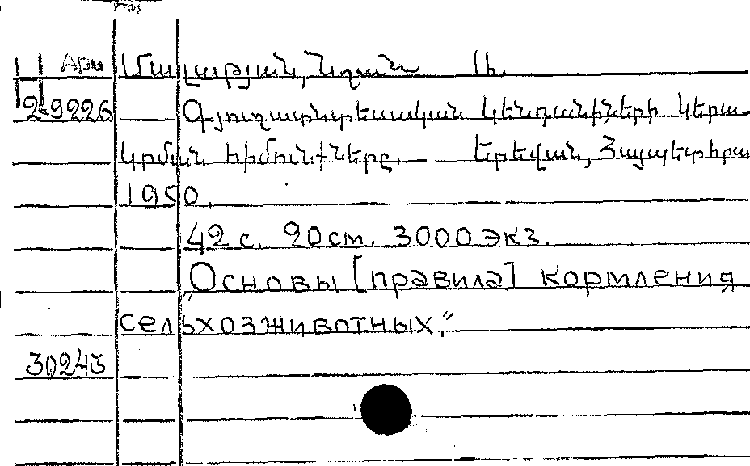 Арм Մալաթյան,
2-9226 Գյուղատնտեսական կենդանիների կերա
կրման հիմունքները. — Երևան, Հայպետհրատ
1950.
42 с. 20 см. 3000 экз.
„Основы [правила] кормления
сельхозживотных.“
30243